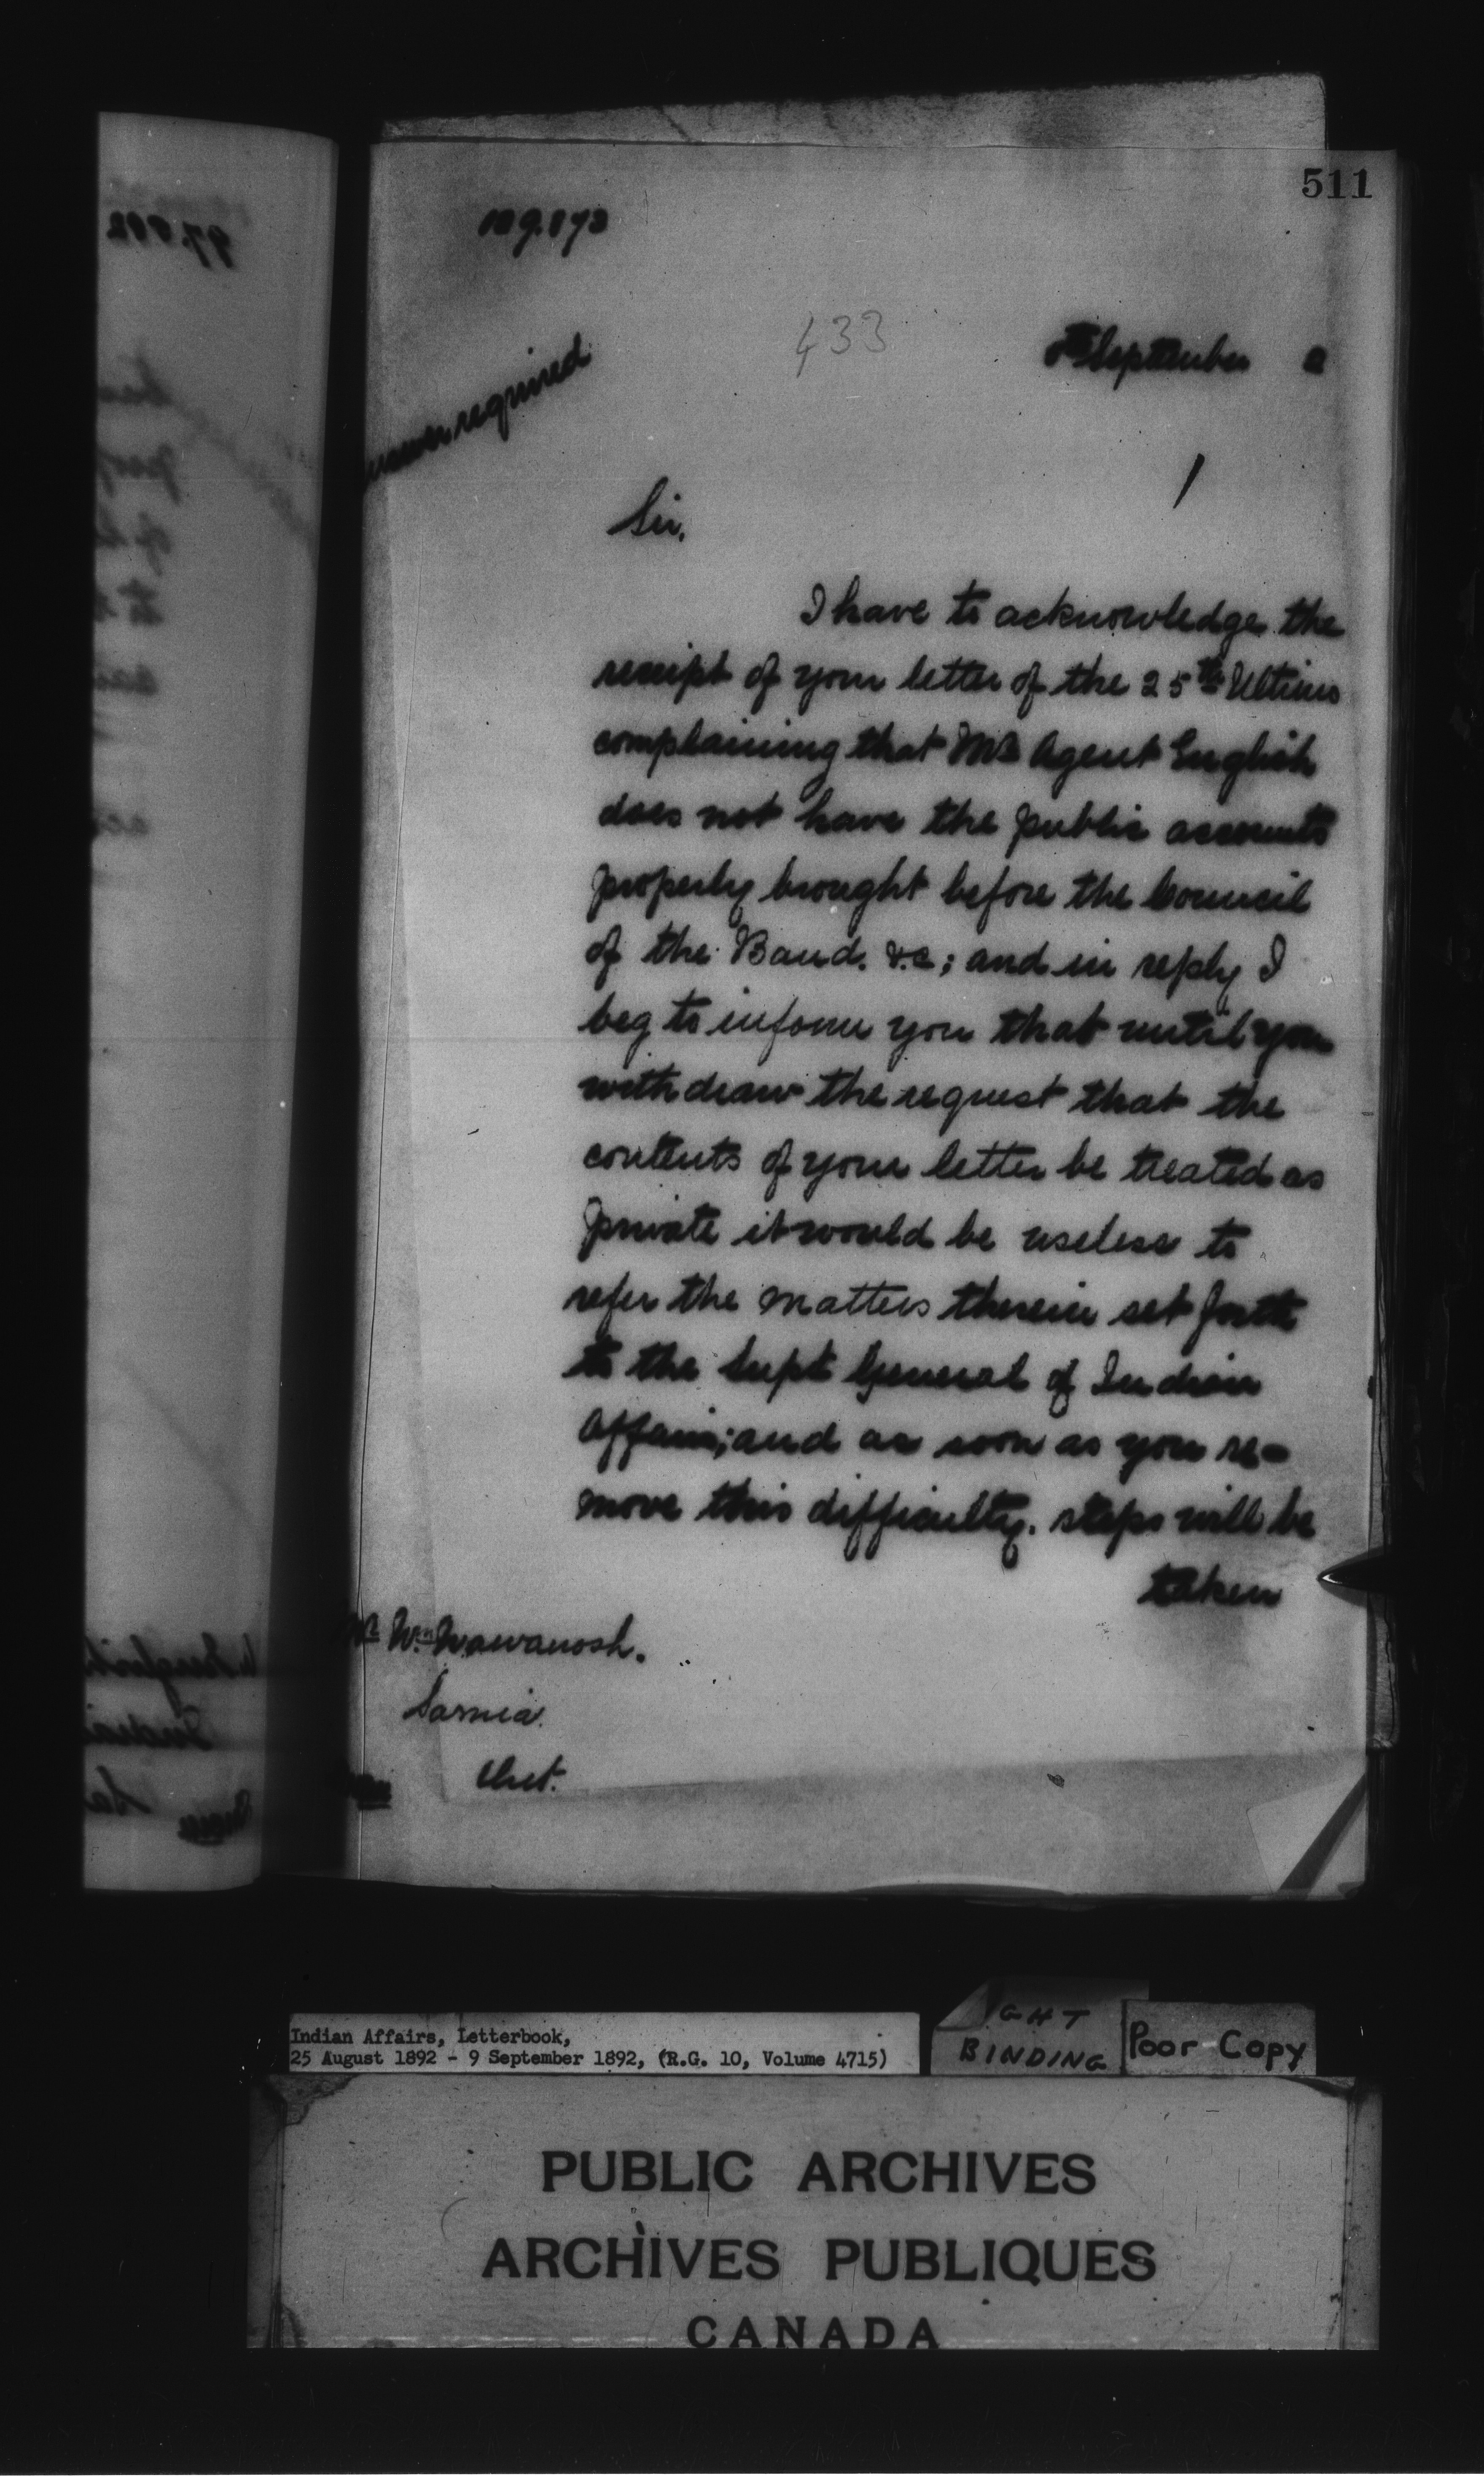 511
433
September 2
required
Sir,
I have to acknowledge the
receipt of your letter of the 25th Ultimo
complaining that Mr Agent English
does not have the public accounts
properly brought before the Council
of the Band. &c; and in reply I
beg to inform you that until you
withdraw the request that the
contents of your letter be treated as
private it would be useless to
refer the matters therein set forth
to the Supt General of Indian
Affairs; and as soon as you re-
move this difficulty. steps will be
taken
Mr Wm Wawanosh.
Sarnia.
Ont.
Indian Affairs, Letterbook,
25 August 1892 - 9 September 1892, (R.G. 10, Volume 4715)
GHT
BINDING
Poor Copy
PUBLIC ARCHIVES
ARCHIVES PUBLIQUES
CANADA